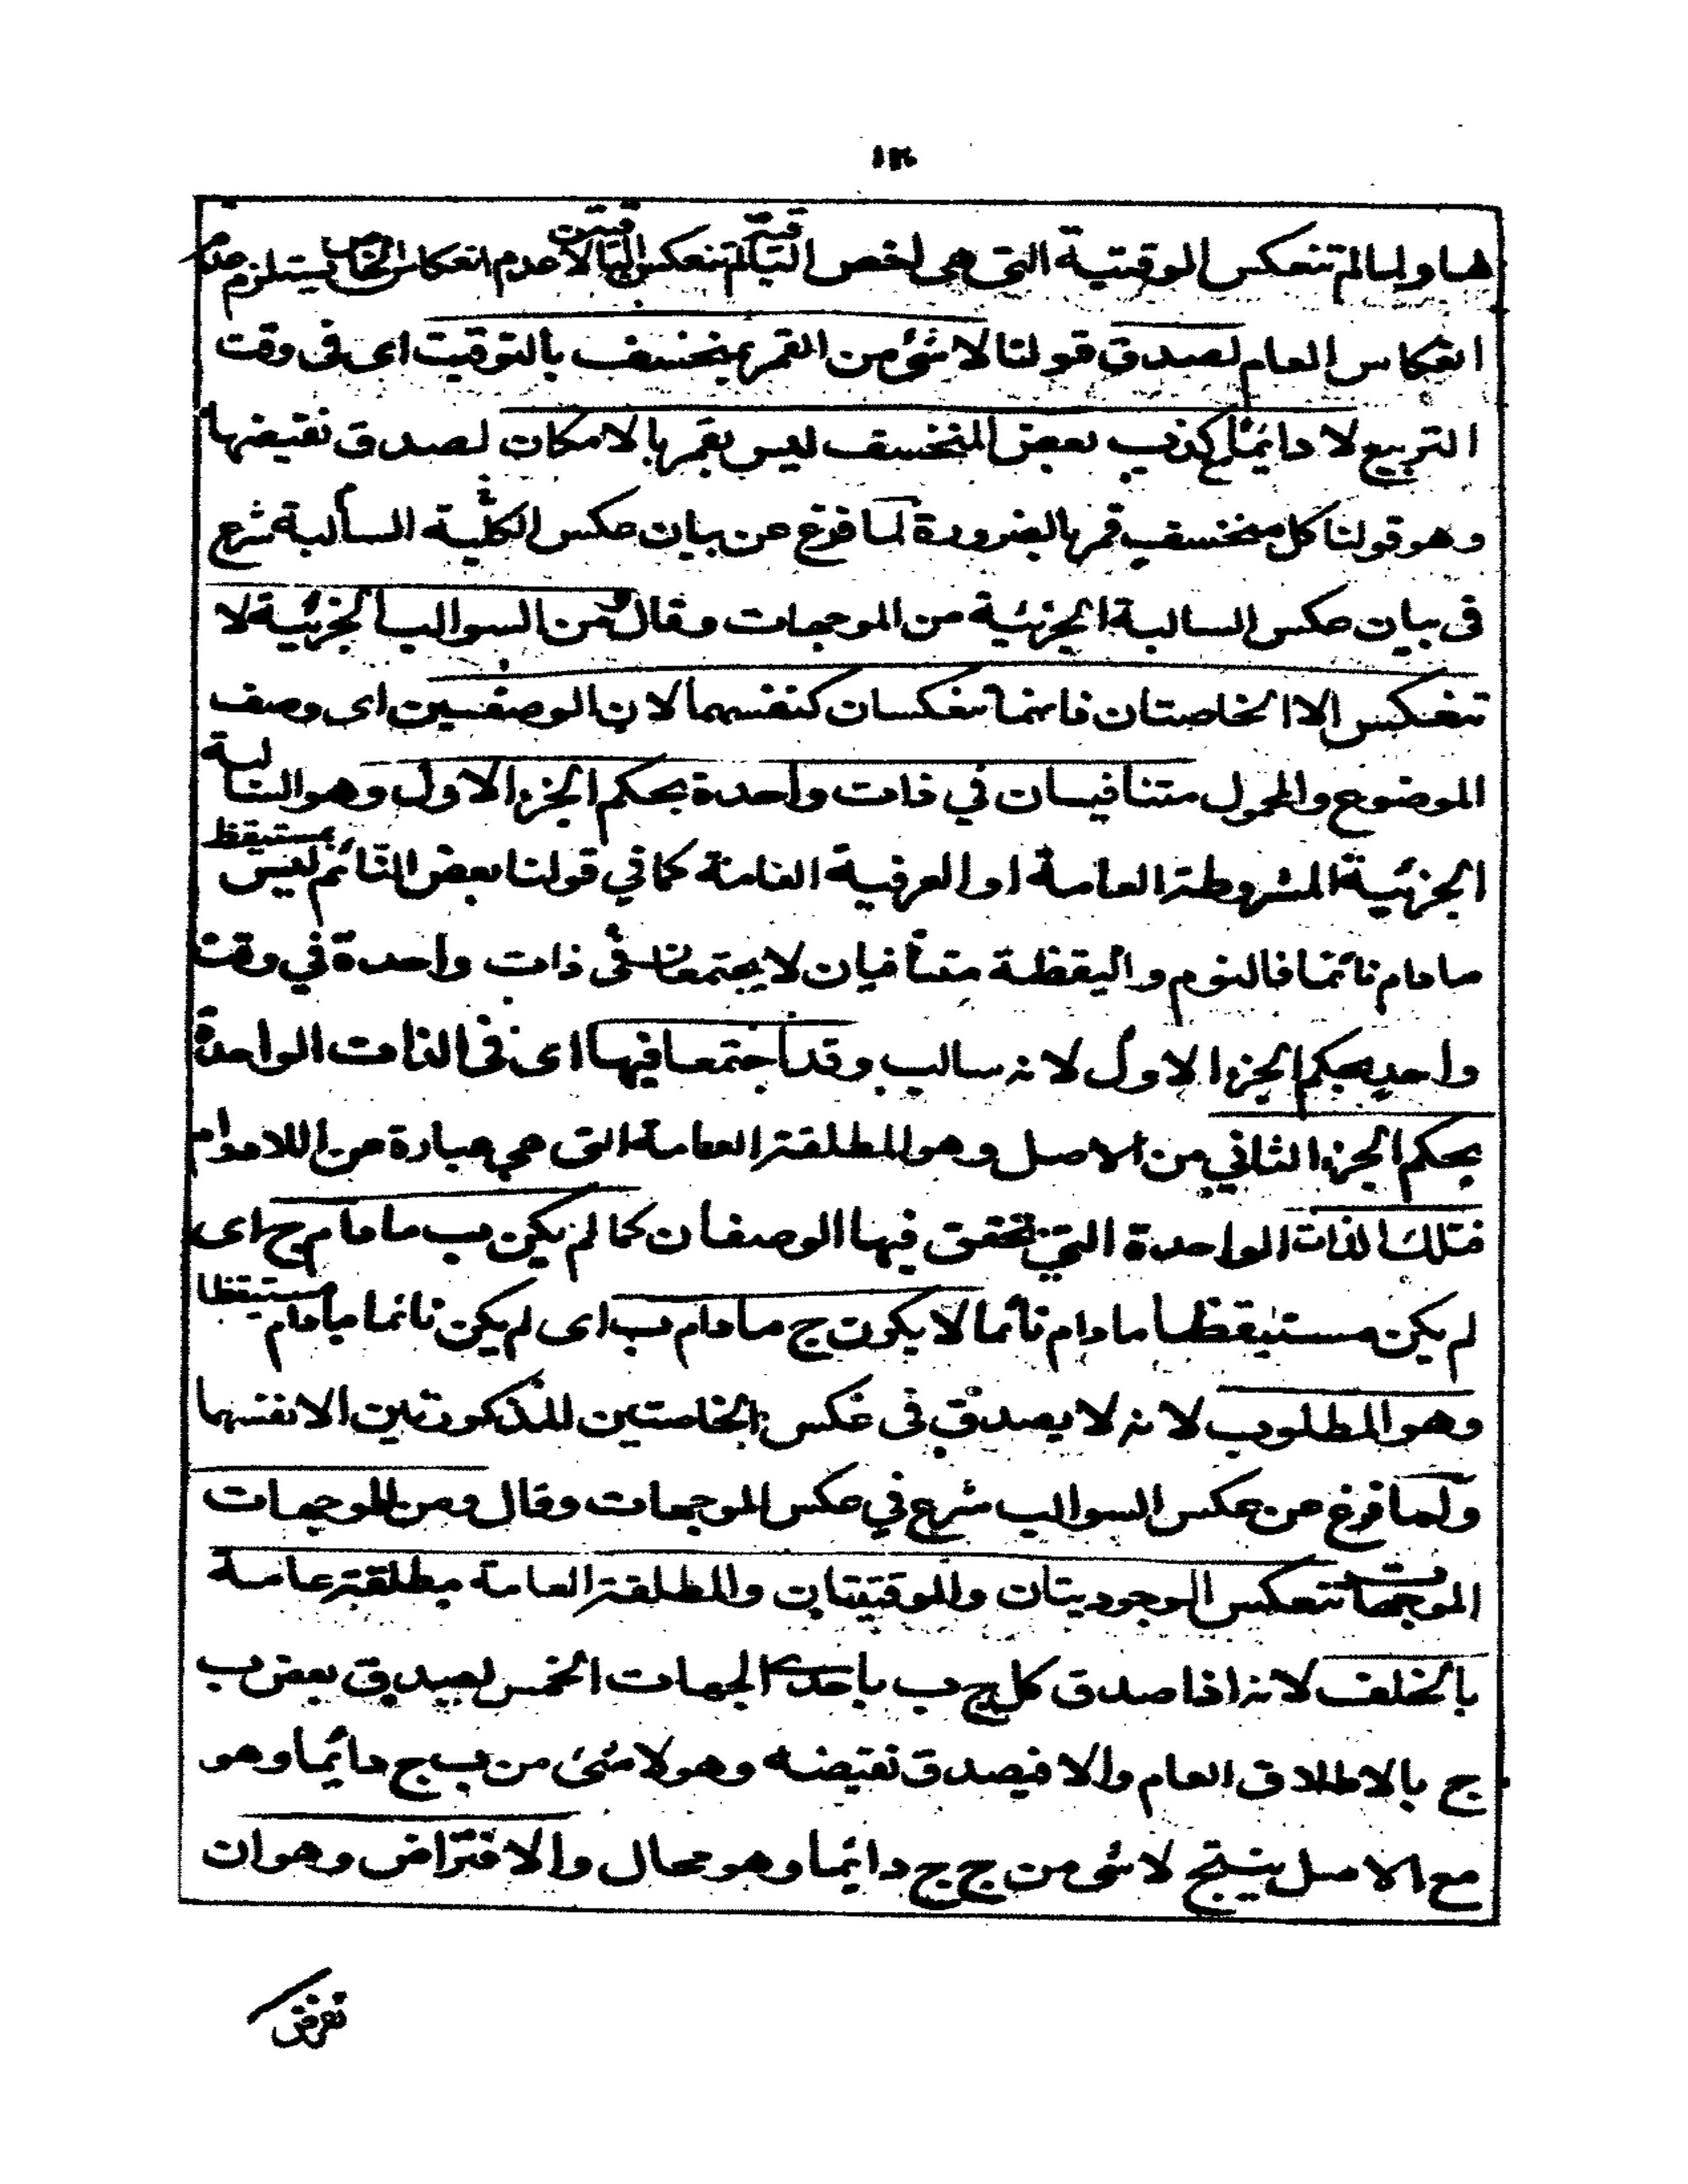 ١٣
هما ولما لم تنعكس الوقتية التى هى اخص الباقية لم تنعكس البواقى لان عدم انعكاس الخاص يستلزم عدم
انعكاس العام لصدق قولنا لا شئ من القمر بمنخسف بالتوقيت اى فى وقت
التربيع لا دائما مع كذب بعض المنخسف ليس بقمر بالامكان لصدق نقيضها
وهو قولنا كل منخسف قمر بالضرورة لما فرغ عن بيان عكس الكلية السالبة شرع
فى بيان عكس السالبة الجزئية من الموجهات وقال ومن السوالب الجزئية لا
تنعكس الا الخاصتان فانهما تنعكسان كنفسهما لان الوصفين اى وصف
الموضوع والمحمول متنافيان في ذات واحدة بحكم الجزء الاول وهو السالبة
الجزئية المشروطة العامة او العرفية العامة كما في قولنا بعض النائم ليس بمستيقظ
مادام نائما فالنوم واليقظة متنافيان لا يجتمعان فى ذات واحدة في وقت
واحد بحكم الجزء الاول لانه سالب وقد اجتمعا فيها اى فى الذات الواحدة
بحكم الجزء الثاني من الاصل وهو المطلقة العامة التى هى عبارة عن اللادوام
فتلك الذات الواحدة التى تحقق فيها الوصفان كما لم يكن ب مادام ج اى
لم يكن مستيقظا مادام نائما لا يكون ج مادام ب اى لم يكن نائما مادام مستيقظا
وهو المطلوب لانه لا يصدق فى عكس الخاصتين المذكورتين الا نفسهما
ولما فرغ عن عكس السوالب شرع في عكس الموجهات وقال ومن الموجهات
الموجبات تنعكس الوجوديتان والوقتيتان والمطلقة العامة مطلقة عامة
بالخلف لانه اذا صدق كل ج ب باحدى الجهات الخمس لصدق بعض ب
ج بالاطلاق العام والا فيصدق نقيضه وهو لا شئ من ب ج دائما وهو
مع الاصل ينتج لا شئ من ج ج دائما وهو محال والافتراض وهو ان
نفرض